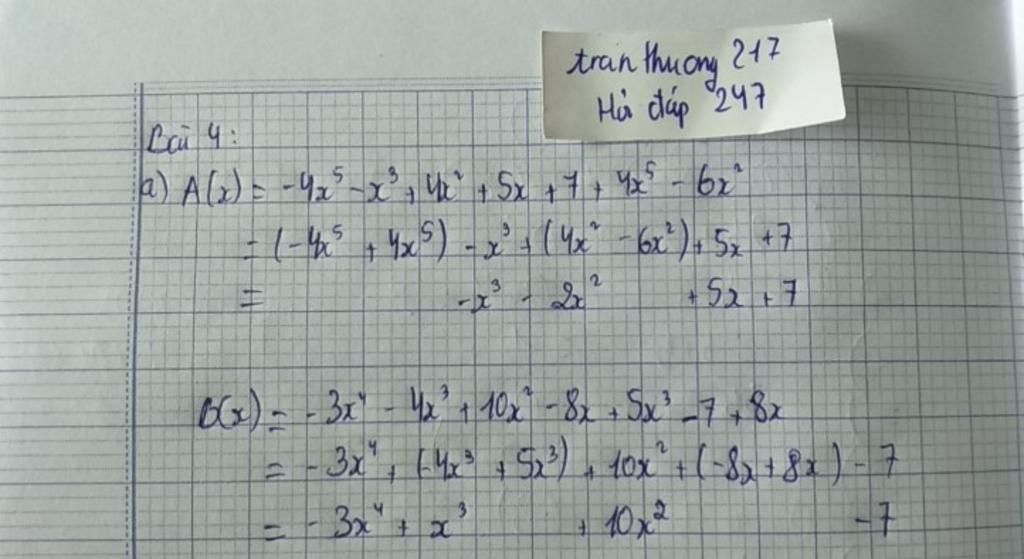 tran thuong 217
Hỏi đáp 247
Bài 4:
a) A(x) = -4x⁵ - x³ + 4x² + 5x + 7 + 4x⁵ - 6x²
= (-4x⁵ + 4x⁵) - x³ + (4x² - 6x²) + 5x + 7
= -x³ - 2x² + 5x + 7
B(x) = -3x⁴ - 4x³ + 10x² - 8x + 5x³ - 7 + 8x
= -3x⁴ + (-4x³ + 5x³) + 10x² + (-8x + 8x) - 7
= -3x⁴ + x³ + 10x² - 7